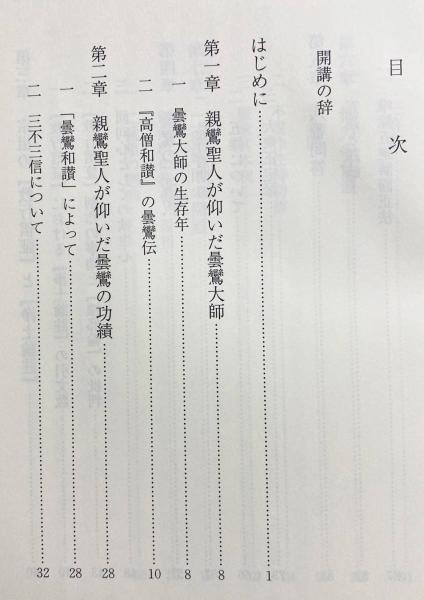 目次
開講の辞
はじめに……………………1
第一章 親鸞聖人が仰いだ曇鸞大師……………………8
一 曇鸞大師の生存年……………………8
二 『高僧和讃』の曇鸞伝……………………10
第二章 親鸞聖人が仰いだ曇鸞の功績……………………28
一 「曇鸞和讃」によって……………………28
二 三不三信について……………………32